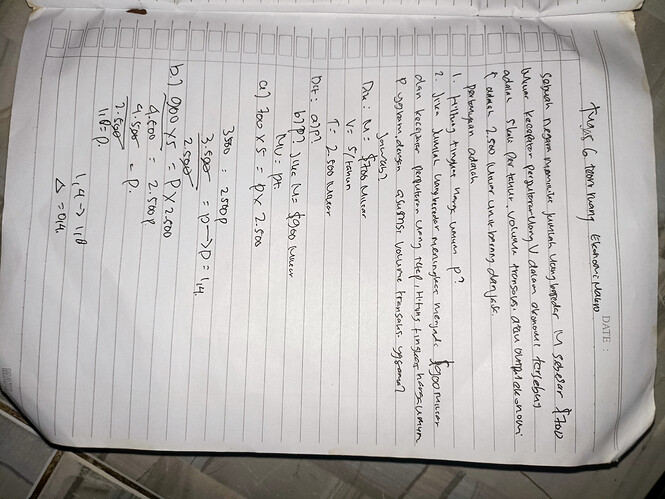 DATE :
Tugas 6 teori ruang Ekonomi Makro
sebuah negara memiliki jumlah uang beredar M sebesar $700
Miliar kecepatan perputaran uang V dalam ekonomi tersebut
adalah 5 kali per tahun. Volume transaksi atau output ekonomi
T adalah 2.500 Miliar unit barang dan jasa.
Pertanyaan adalah
1. Hitung tingkat harga umum P?
2. Jika Jumlah uang beredar meningkat menjadi $900 Miliar
dan kecepatan perputaran uang tetap, Hitung tingkat harga umum
P yg baru dengan asumsi volume transaksi yg sama?
Jawab?
Dik : M = $700 Miliar
V = 5/tahun
T = 2.500 Miliar
Dit : a) P?
b) P? Jika M = $900 Miliar
MV = PT
a) 700 x 5 = P x 2.500
3500 = 2500P
3.500/2.500 = P → P = 1,4.
b) 900 x 5 = P x 2.500
4.500 = 2.500P
4.500/2.500 = P.
1,8 = P.
1,4 → 1,8
Δ = 0,4.